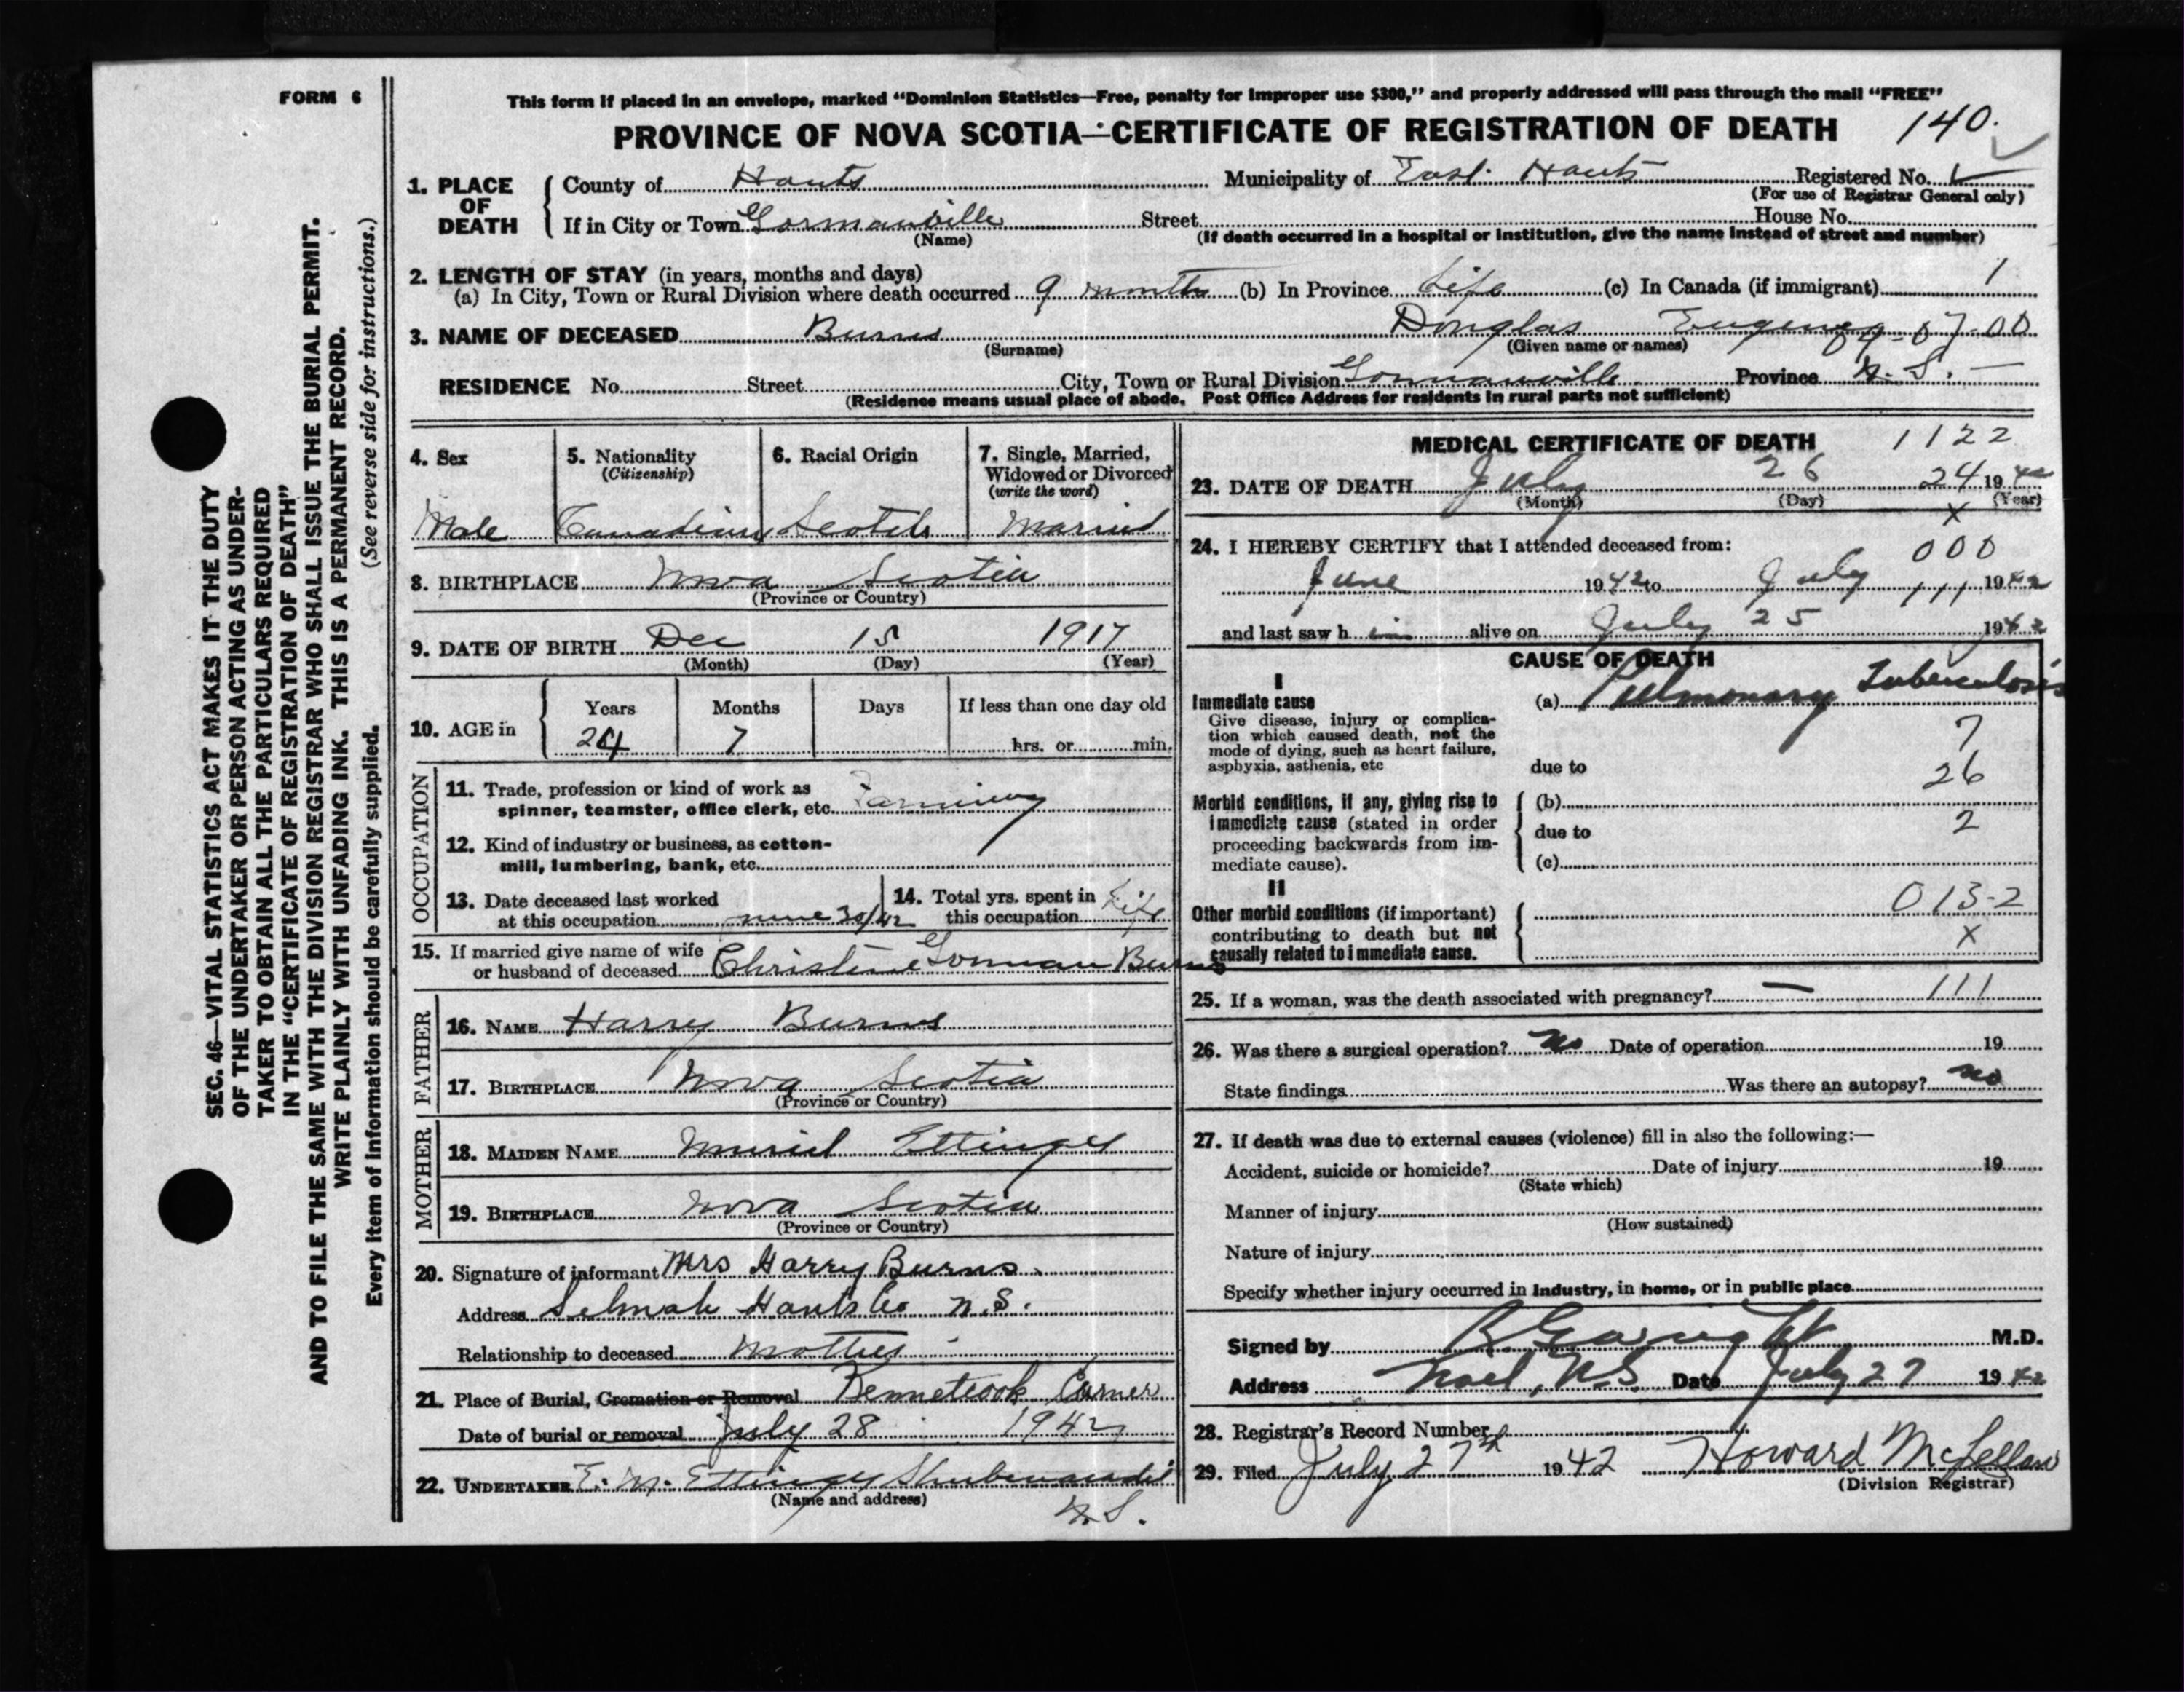 FORM 6
This form if placed in an envelope, marked “Dominion Statistics—Free, penalty for improper use $300,” and properly addressed will pass through the mail “FREE”
PROVINCE OF NOVA SCOTIA—CERTIFICATE OF REGISTRATION OF DEATH 140.
1. PLACE OF DEATH County of Hants Municipality of East Hants Registered No.
(For use of Registrar General only)
If in City or Town Gormanville Street House No.
(Name) (If death occurred in a hospital or institution, give the name instead of street and number)
2. LENGTH OF STAY (in years, months and days) 1
(a) In City, Town or Rural Division where death occurred 9 months (b) In Province Life (c) In Canada (if immigrant)
3. NAME OF DECEASED Burns Douglas Eugene 07-00
(Surname) (Given name or names)
RESIDENCE No. Street City, Town or Rural Division Gormanville Province N.S.
(Residence means usual place of abode. Post Office Address for residents in rural parts not sufficient)
4. Sex
Male
5. Nationality
(Citizenship)
Canadian
6. Racial Origin
Scotch
7. Single, Married, Widowed or Divorced
(write the word)
Married
8. BIRTHPLACE Nova Scotia
(Province or Country)
9. DATE OF BIRTH Dec 15 1917
(Month) (Day) (Year)
10. AGE in Years Months Days If less than one day old
24 7 hrs. or min.
OCCUPATION
11. Trade, profession or kind of work as
spinner, teamster, office clerk, etc. Farming
12. Kind of industry or business, as cotton-
mill, lumbering, bank, etc.
13. Date deceased last worked
at this occupation 30/42
14. Total yrs. spent in
this occupation Life
15. If married give name of wife
or husband of deceased Christine Gorman Burns
FATHER
16. NAME Harry Burns
17. BIRTHPLACE Nova Scotia
(Province or Country)
MOTHER
18. MAIDEN NAME Muriel Ettinger
19. BIRTHPLACE Nova Scotia
(Province or Country)
20. Signature of informant Mrs Harry Burns
Address Selmah Hants Co N.S.
Relationship to deceased Mother
21. Place of Burial, Cremation or Removal Kennetcook Corner
Date of burial or removal July 28 1942
22. UNDERTAKER E. M. Ettinger Shubenacadie
(Name and address)
N.S.
MEDICAL CERTIFICATE OF DEATH 1122
23. DATE OF DEATH July 26 24 1942
(Month) (Day) (Year)
X
24. I HEREBY CERTIFY that I attended deceased from: 000
June 1942 to July 111 1942
and last saw him alive on July 25 1942
CAUSE OF DEATH
I
Immediate cause (a) Pulmonary Tuberculosis
Give disease, injury or complica-
tion which caused death, not the
mode of dying, such as heart failure,
asphyxia, asthenia, etc
7
due to 26
Morbid conditions, if any, giving rise to
immediate cause (stated in order
proceeding backwards from im-
mediate cause).
(b)
due to 2
(c)
II
Other morbid conditions (if important)
contributing to death but not
causally related to immediate cause.
013-2
X
25. If a woman, was the death associated with pregnancy? — 111
26. Was there a surgical operation? No Date of operation 19
State findings Was there an autopsy? No
27. If death was due to external causes (violence) fill in also the following:—
Accident, suicide or homicide? Date of injury 19
(State which)
Manner of injury
(How sustained)
Nature of injury
Specify whether injury occurred in industry, in home, or in public place
Signed by M.D.
Address Noel, N.S. Date July 27 1942
28. Registrar's Record Number
29. Filed July 27th 1942 Howard McLellan
(Division Registrar)
SEC. 46—VITAL STATISTICS ACT MAKES IT THE DUTY
OF THE UNDERTAKER OR PERSON ACTING AS UNDER-
TAKER TO OBTAIN ALL THE PARTICULARS REQUIRED
IN THE “CERTIFICATE OF REGISTRATION OF DEATH”
AND TO FILE THE SAME WITH THE DIVISION REGISTRAR WHO SHALL ISSUE THE BURIAL PERMIT.
WRITE PLAINLY WITH UNFADING INK. THIS IS A PERMANENT RECORD.
Every item of information should be carefully supplied. (See reverse side for instructions.)